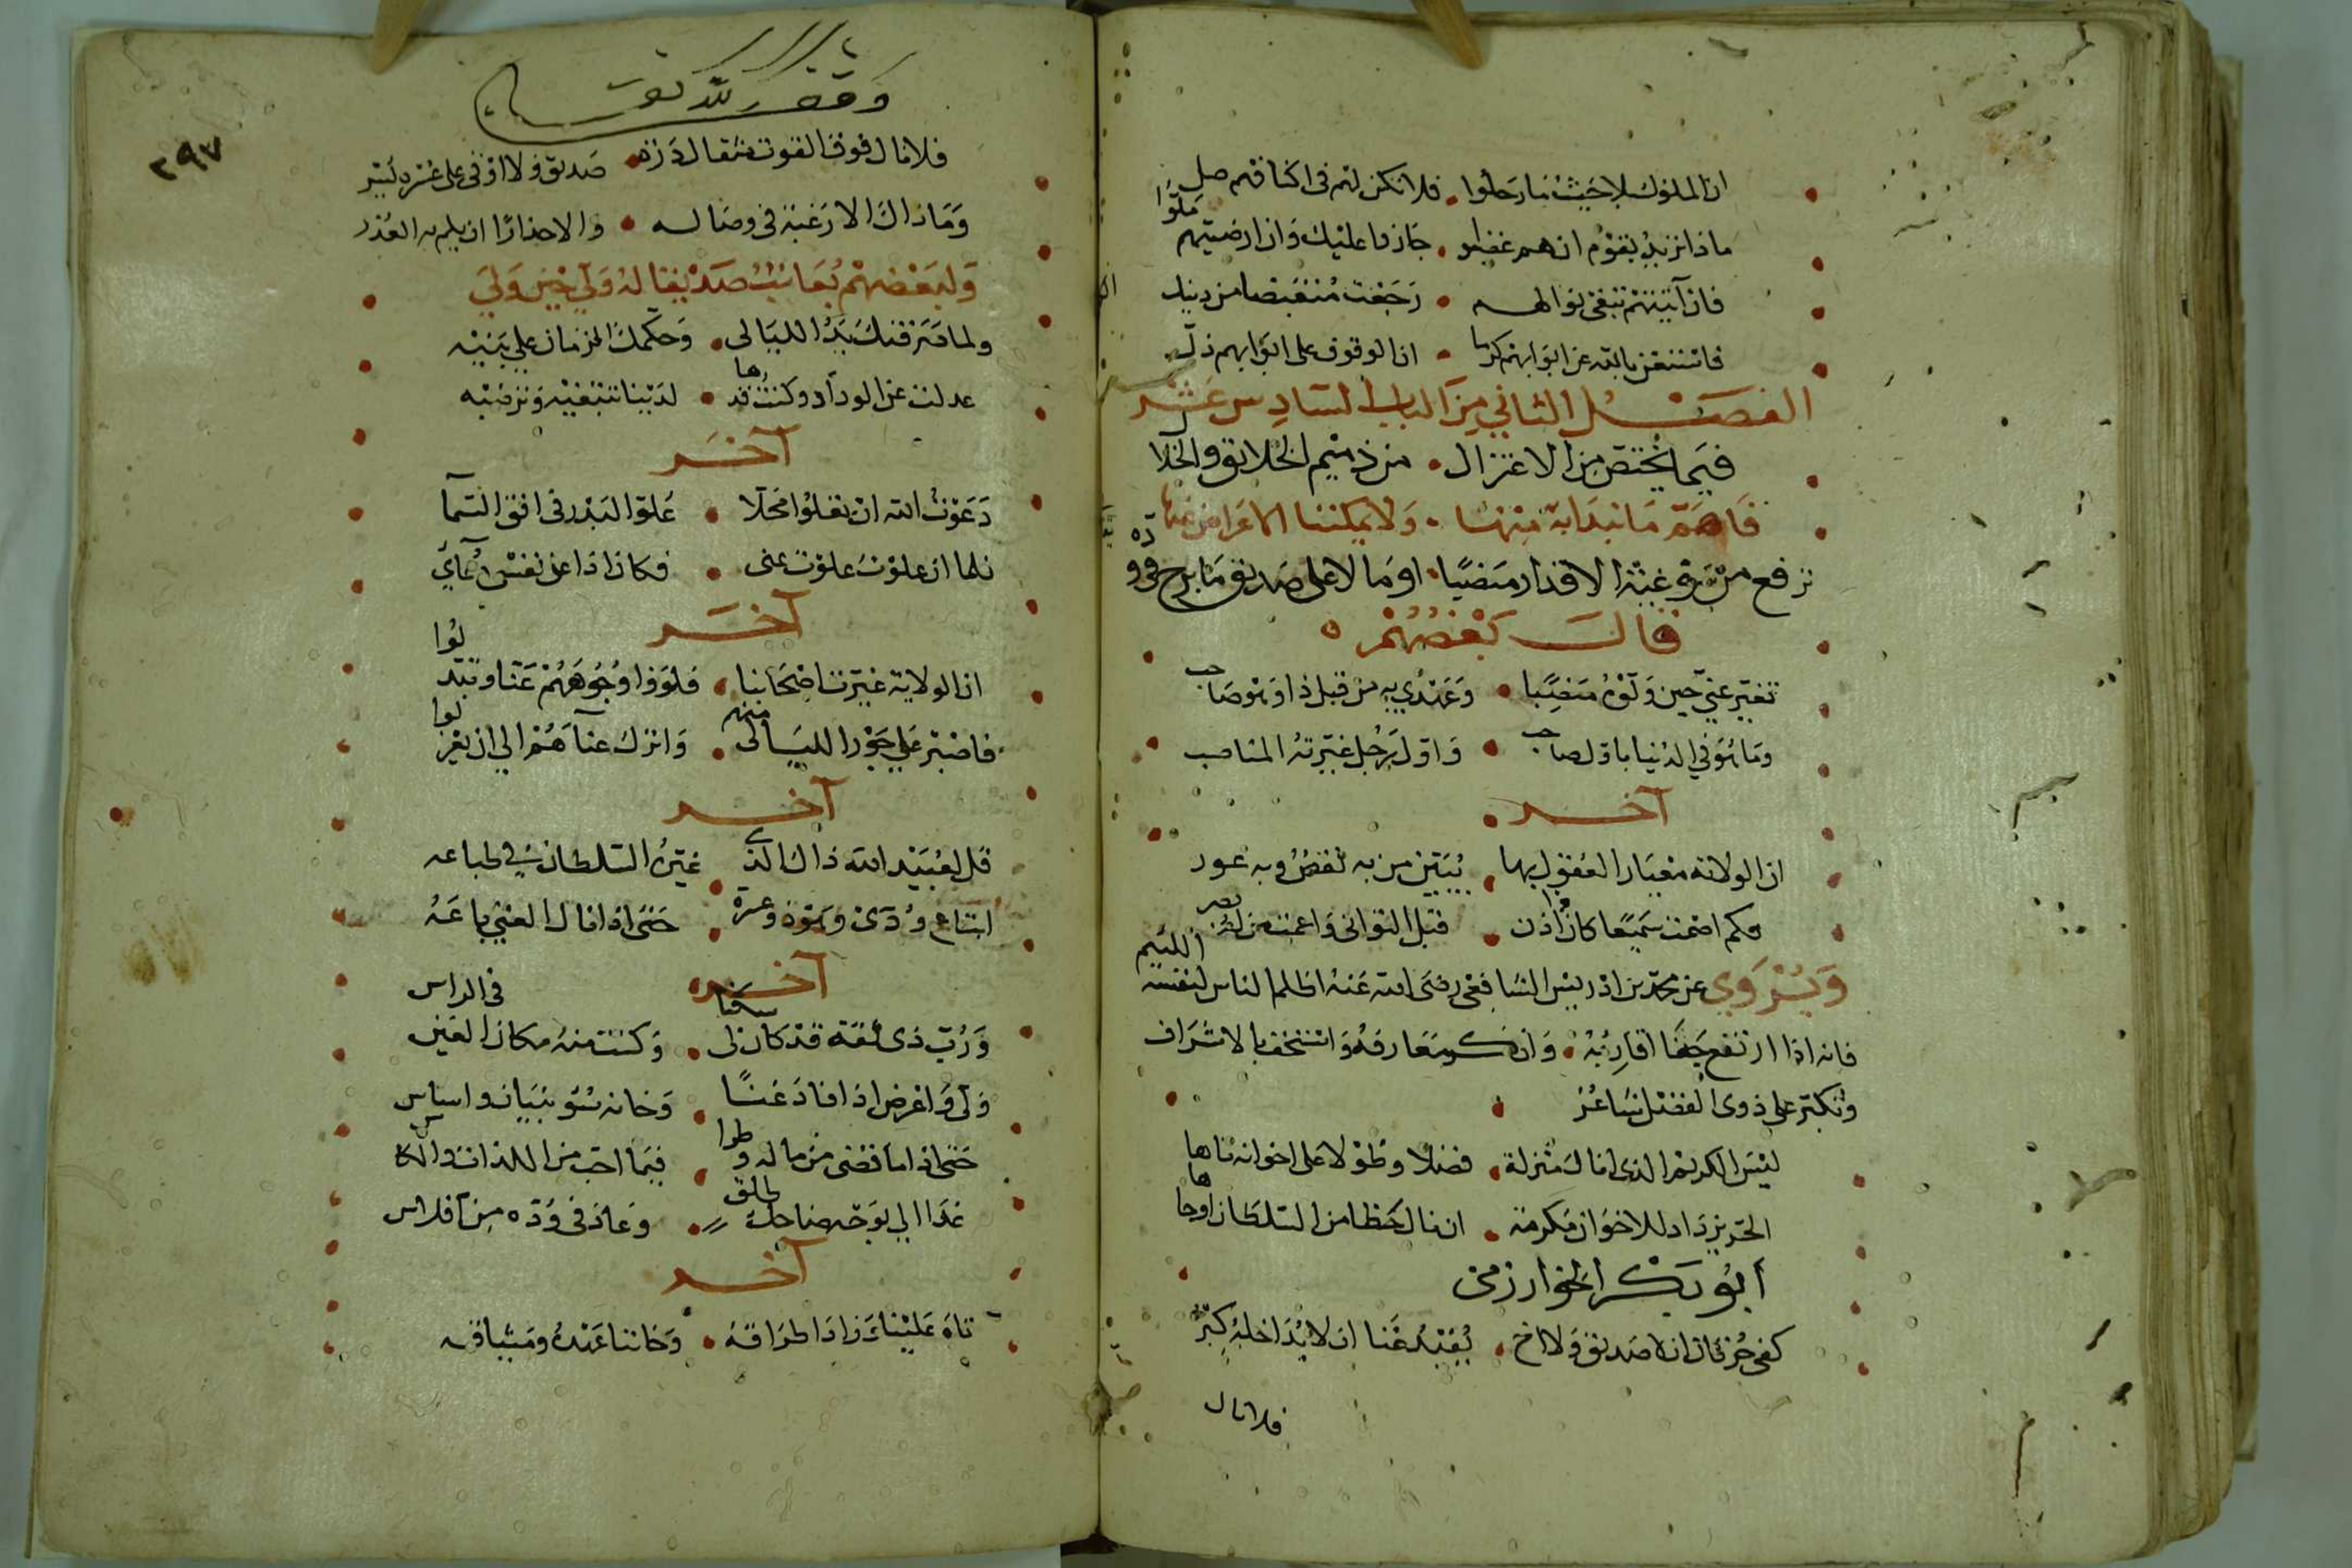 ان الملوك بلا حيث ما رحلوا • فلا تكن لهم في اكنافهم ظل
ماذا تريد بقوم ان هم غضبوا • جازوا عليك وان ارضيتهم ملّوا
فان آتيتهم تبغي نوالهم • رجعت منقبضا من دينك
فاستغن بالله عن ابوابهم كرما • ان الوقوف على ابوابهم ذلّ
الفصل الثاني من الباب السادس عشر
فيما يختص من الاعتزال • من ذميم الخلائق والخلا
فاهم ما نبدا به منها • ولا يمكننا الاعراض عنها
ترفع من رقته الاقدار منصبا • او مالا على صديق ما برح في وده
قال بعضهم
تغير عني حين ولوه منصبا • وعهدي به من قبل ذا وهو صاحب
وما هو في الدنيا باول صاحب • واول رجل غيرته المناصب
آخر
ان الولاية معيار العقول بها • يبين من به نقص وبه عور
فكم اصمت سميعا كان ذا اذن • قبل التواني واعمت من له بصر
ويروي عن محمد بن ادريس الشافعي رضي الله عنه اظلم الناس لنفسه اللئيم
فانه اذا ارتفع جفا اقاربه • وانكر معارفه واستخف بالاشراف
وتكبر على ذوي الفضل شاعر
ليس الكريم الذي ان نال منزلة • فضلا وطولا على اخوانه تاها
الحر يزداد للاخوان مكرمة • ان نال حظا من السلطان او جاها
ابو بكر الخوارزمي
كفى حزنا ان لا صديق ولا اخ • يفيد غنا ان لا يداخله كبر
فلا نال
وقف لله تعالى
٢٩٧
فلا نال فوق القوت مثقال ذرة • صديق ولا اوفى على عسره يسر
وما ذاك الا رغبة في وصاله • والا حذارا ان يلم به العذر
ولبعضهم يعاتب صديقا له ولّي حين ولي
ولما فرقتك يد الليالي • وحكمك الزمان على بنيه
عدلت عن الوداد وكنت قدها • لدينا تبتغيه وترتضيه
آخر
دعوت الله ان تعلوا محلا • علو البدر في افق السما
فلما ان علوت علوت عني • فكان اذا على نفسي دعاي
آخر
ان الولاية غيرت اصحابنا • فلووا وجوههم عنا وتبدلوا
فاصبر على جور الليالي منهم • واترك عناهم الي ان يعزلوا
آخر
قل لعبيد الله ذاك الذي • غيره السلطان في طباعه
ابتاع ودي وهو ذو عسرة • حتى اذا نال الغني باعه
آخر
ورب ذي ثقة قد كان لي سكنا • وكنت منه مكان العين في الراس
ولي واعرض اذ افاد غنا • وخانه سو بنيان واساس
حتى اذا ما قضى من ماله وطرا • فيما احب من اللذات والكاس
غدا الي بوجه ضاحك طلق • وعاد في وده من افلاس
آخر
تاه علينا وزاد اطراقه • وخاننا عهده وميثاقه